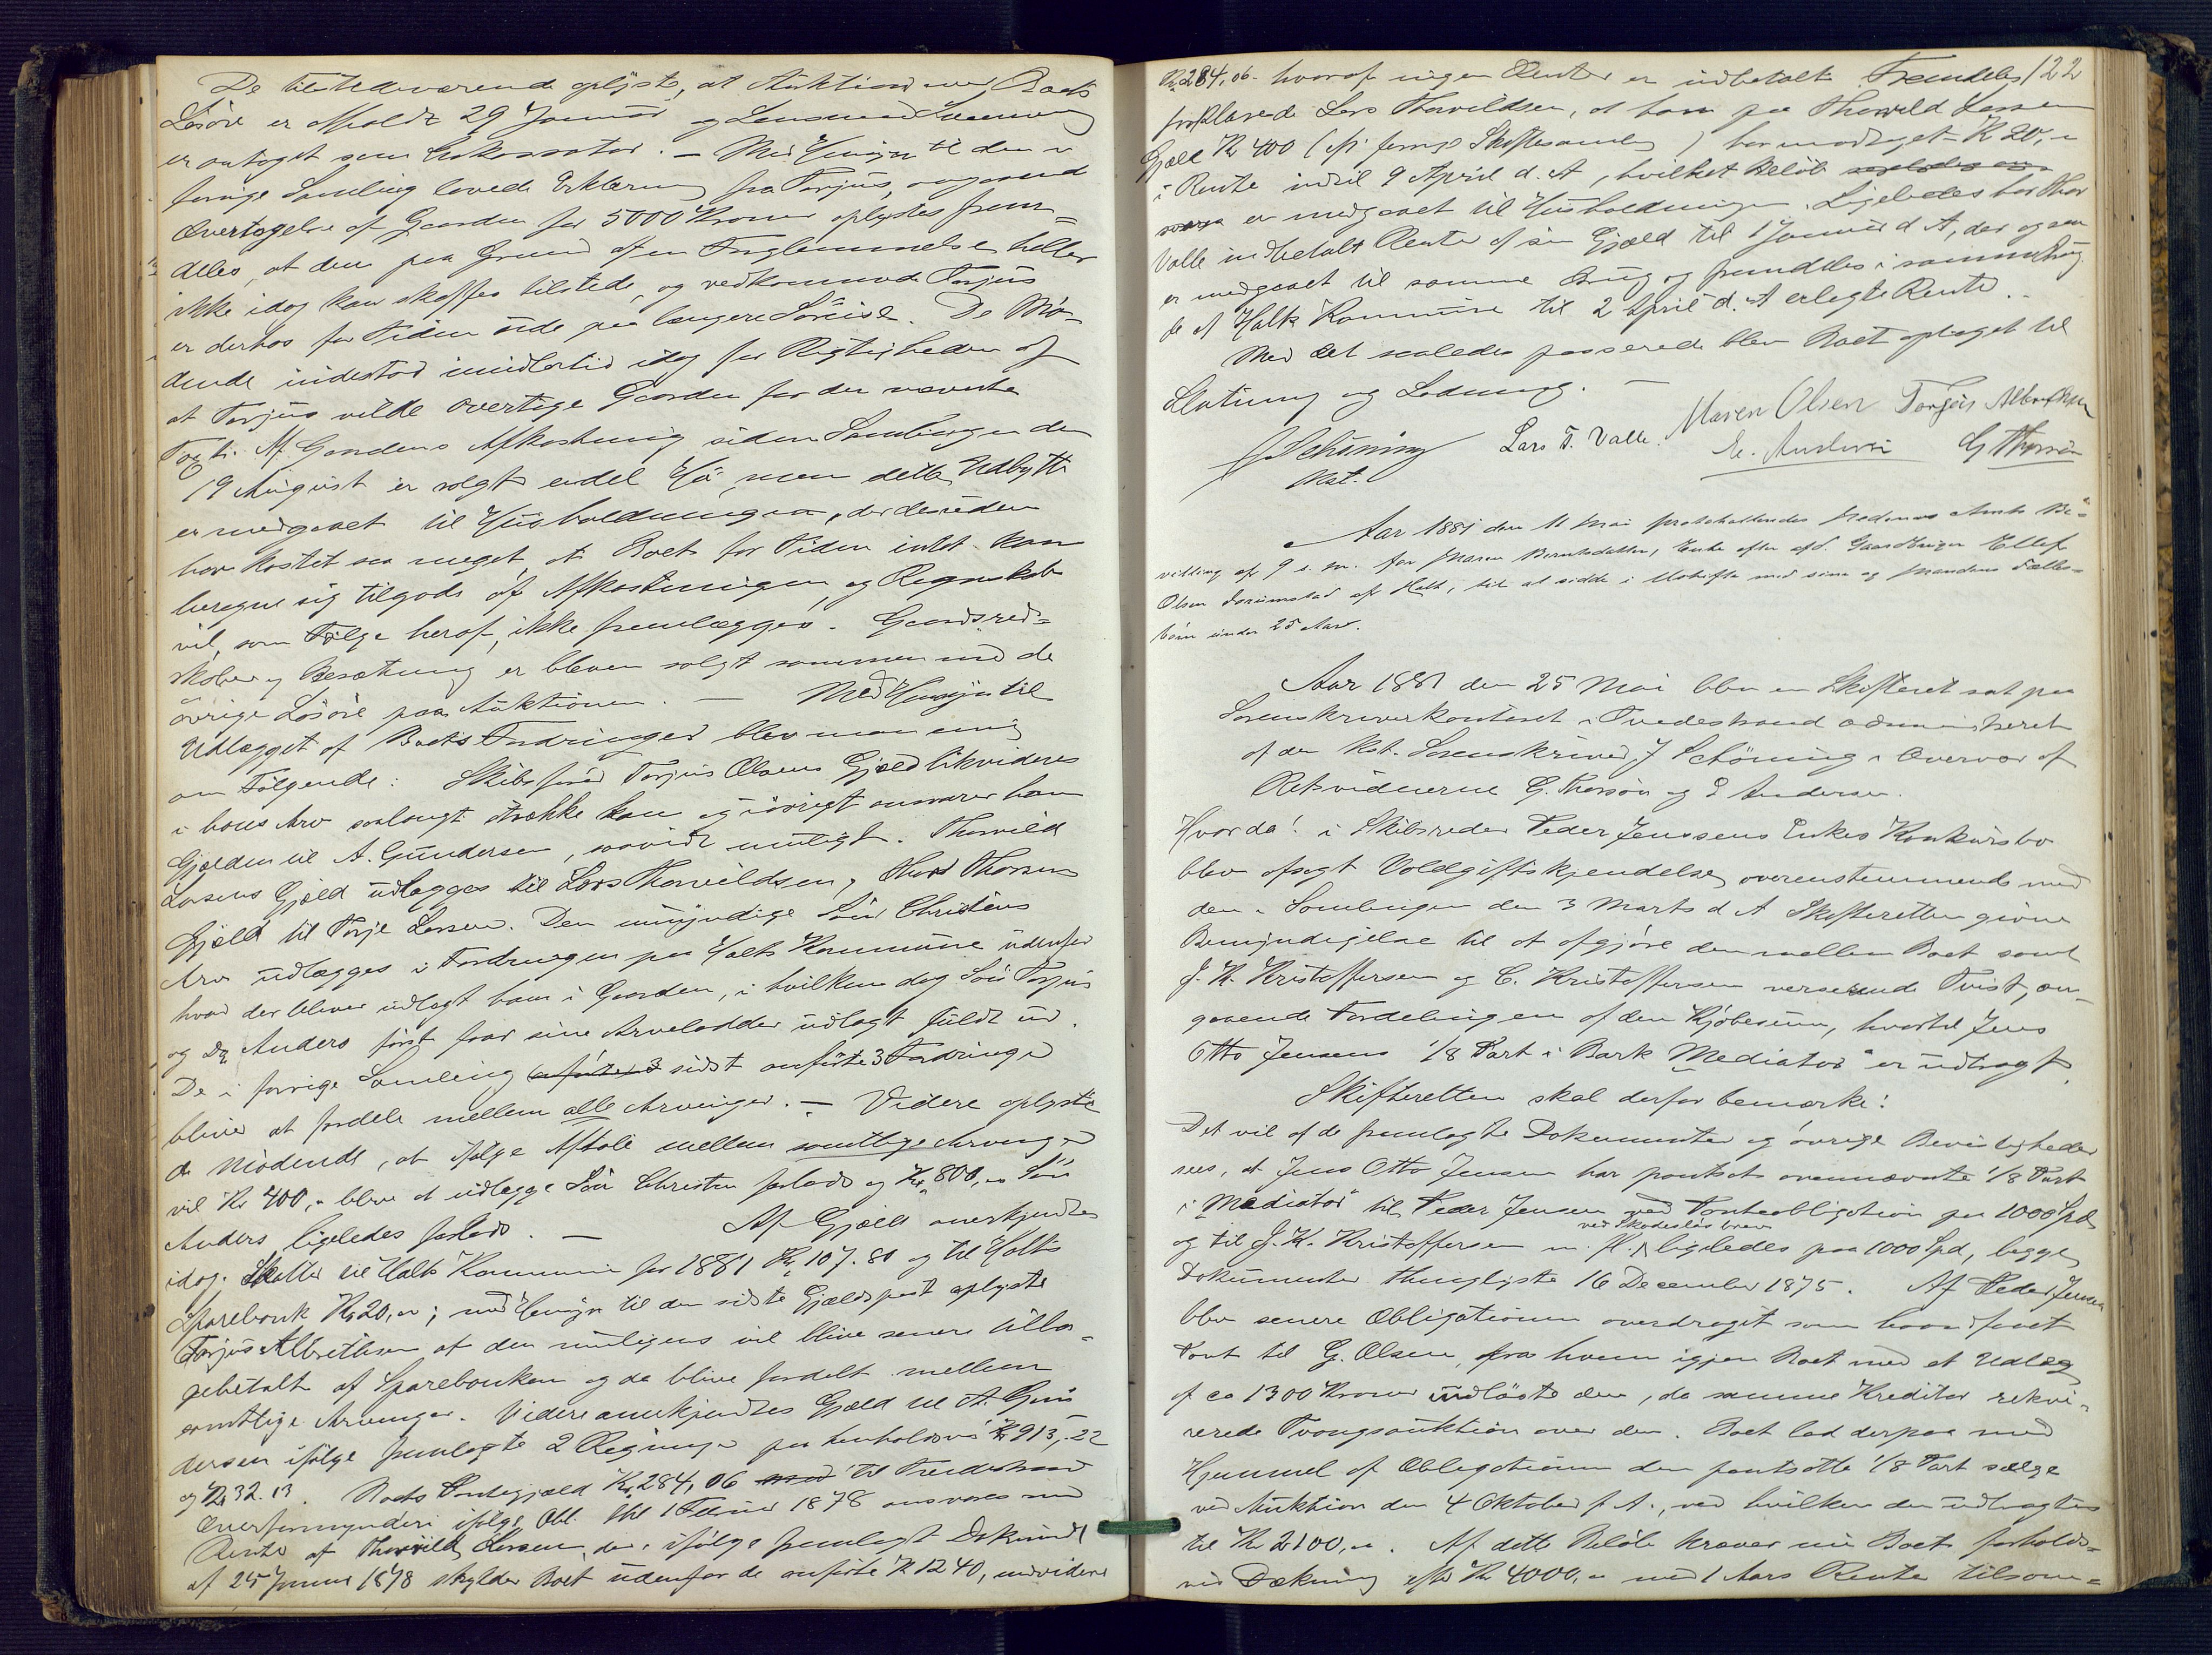 De tilstedeværende oplyste, at Auktion over Boets
Løsøre er afholdt 29 Januar og Lensmand
er antaget som Inkassator. – Med Hensyn til den i
forrige Samling lovede Erklæring fra Torjus, angaaende
Overtagelse af Gaarden for 5000 Kroner oplystes frem=
deles, at den paa Grund af en Forglemmelse heller
ikke idag kan skaffes tilstede, og vedkommende Torjus
er derhos for Tiden ude paa længere Søreise. De Mö-
dende indestod imidlertid idag for Rigtigheden af
at Torjus vilde overtage Gaarden for den nævnte
Taxt. Af Gaardens Afkastning siden Samlingen den
19 August er solgt endel Hö, men dette Udbytte
er medgaaet til Husholdningen, der desuden
har kostet saa meget, at Boet for Tiden intet kan
beregne sig tilgode af Afkastningen, og Regnskab
vil, som Fölge heraf, ikke fremlægges. Gaardsred=
skaber og Besætning er bleven solgt sammen med de
övrige Lösöre paa Auktionen. – Med Hensyn til
Udlægget af Boets Fordringer blev man enig
om Fölgende: Skibsförer Torjus Olsens Gjæld likvideres
i hans Arv saalangt række kan og iövrigt ansvarer han
Gjælden til A. Gundersen, saavidt muligt. Thorvild
Larsens Gjæld udlægges til Lars Thorvildsen, Thor Thorsens
Gjæld til Torje Larsen. Den umyndige Sön Christens
Arv udlægges i Fordringen paa Holts Kommune udenfor
hvad der bliver udlagt ham i Gaarden, i hvilken dog Sön Torjus
og Dr Anders först faar sine Arvelodder udlagt fuldt ud.
De i forrige Samling anförte 3 sidst anförte 3 Fordringer
bliver at fordele mellem alle Arvinger. – Videre oplyste
de Mödende, at ifölge Aftale mellem samtlige Arvinger
vil Kr 400,„ blive at udlægge Sön Christen forlods og Kr 800,„ Sön
Anders ligeledes forlods. – Af Gjæld anerkjendtes
idag: Skatter til Holts Kommune for 1881 Kr 107.80 og til Holts
Sparebank Kr 20,„; med Hensyn til den sidste Gjældspost oplyste
Torjus Albrethsen at den muligens vil blive senere tilba-
gebetalt af Sparebanken og da blive fordelt mellem
samtlige Arvinger. Videre anerkjendtes Gjæld til A. Gun
dersen ifölge fremlagte 2 Regninger paa henholdsvis Kr 913,22
og Kr 32.13. Boets Pantegjæld Kr 284,06 til Tvedestrand
Overformynderi ifölge Obl. 1878 ansvares med
Rente af Thorvild Larsen, der ifölge fremlagt Dokument
af 25 Januar 1878 skylder Boet udenfor de anförte Kr 1240, endvidere
Kr 284,06 hvoraf ingen Renter er udbetalt. Fremdeles 122
forklarede Lars Thorvildsen, at han paa Thorvild Larsens
Gjæld Kr 400 (cfr forrige Skiftesamling) har modtaget Kr 20,„
i Rente indtil 9 April d. A, hvilket Belöb
er medgaaet til Husholdningen. Ligeledes har Thor
Valle indbetalt Rente af sin Gjæld til 1 Januar d A, der ogsaa
er medgaaet til samme Brug og fremdeles i samme Brug
de af Holts Kommune til 2 April d. A erlagte Rente.
Med det saaledes passerede blev Boet optaget til
Slutning og Lodning. –
Maren Olsen Torjus Albrethsen
J Schöning Lars T. Valle. E. Andersen G Thorsön
Kst.
Aar 1881 den 11 Mai protokolleredes Nedenæs Amts Be-
villing af 9 s. m. for Maren Berntsdatter, Enke efter afd. Gaardbruger Ellef
Olsen af Holt, til at sidde i Uskifte med sine og Mandens Fælles-
börn under 25 Aar.
Aar 1881 den 25 Mai blev en Skifteret sat paa
Sorenskriverkontoret i Tvedestrand administreret
af den kst. Sorenskriver J Schöning i Overvær af
Retsvidnerne G. Thorsön og E Andersen.
Hvorda! i Skibsreder Peder Jenssens Enkes Konkursbo
blev afsagt Voldgiftskjendelse, overenstemmende med
den i Samlingen den 3 Marts d A Skifteretten givne
Bemyndigelse til at afgjöre den mellem Boet samt
J. K. Kristoffersen og C. Kristoffersen verserende Tvist, an-
gaaende Fordelingen af den Kjöbesum, hvortil Jens
Otto Jensens 1/8 Part i Bark „Mediator“ er udbragt
Skifteretten skal derfor bemærke:
Det vil af de fremlagte Dokumenter og övrige Bevisligheder
sees, at Jens Otto Jensen har pantsat ovennævnte 1/8 Part
i „Mediator“ til Peder Jensen ved Panteobligation paa 1000 Spd
og til J. K. Kristoffersen m. fl. ved Skadeslösbrev ligeledes paa 1000 Spd, begge
Dokumenter thinglyste 16 December 1875. Af Peder Jensen
blev senere Obligationen overdraget som haandfaaet
Pant til G. Olsen, fra hvem igjen Boet med et Udlæg
af ca 1300 Kroner indlöste den, da samme Kreditor rekvi-
rerede Tvangsauktion over den. Boet lod derpaa med
Hjemmel af Obligationen den pantsatte 1/8 Part sælge
ved Auktion den 4 Oktober f A., ved hvilken den udbragtes
til Kr 2100,„. Af dette Belöb kræver nu Boet forholds=
vis Dækning efter Kr 4000,„ med 1 Aars Rente tilsam=